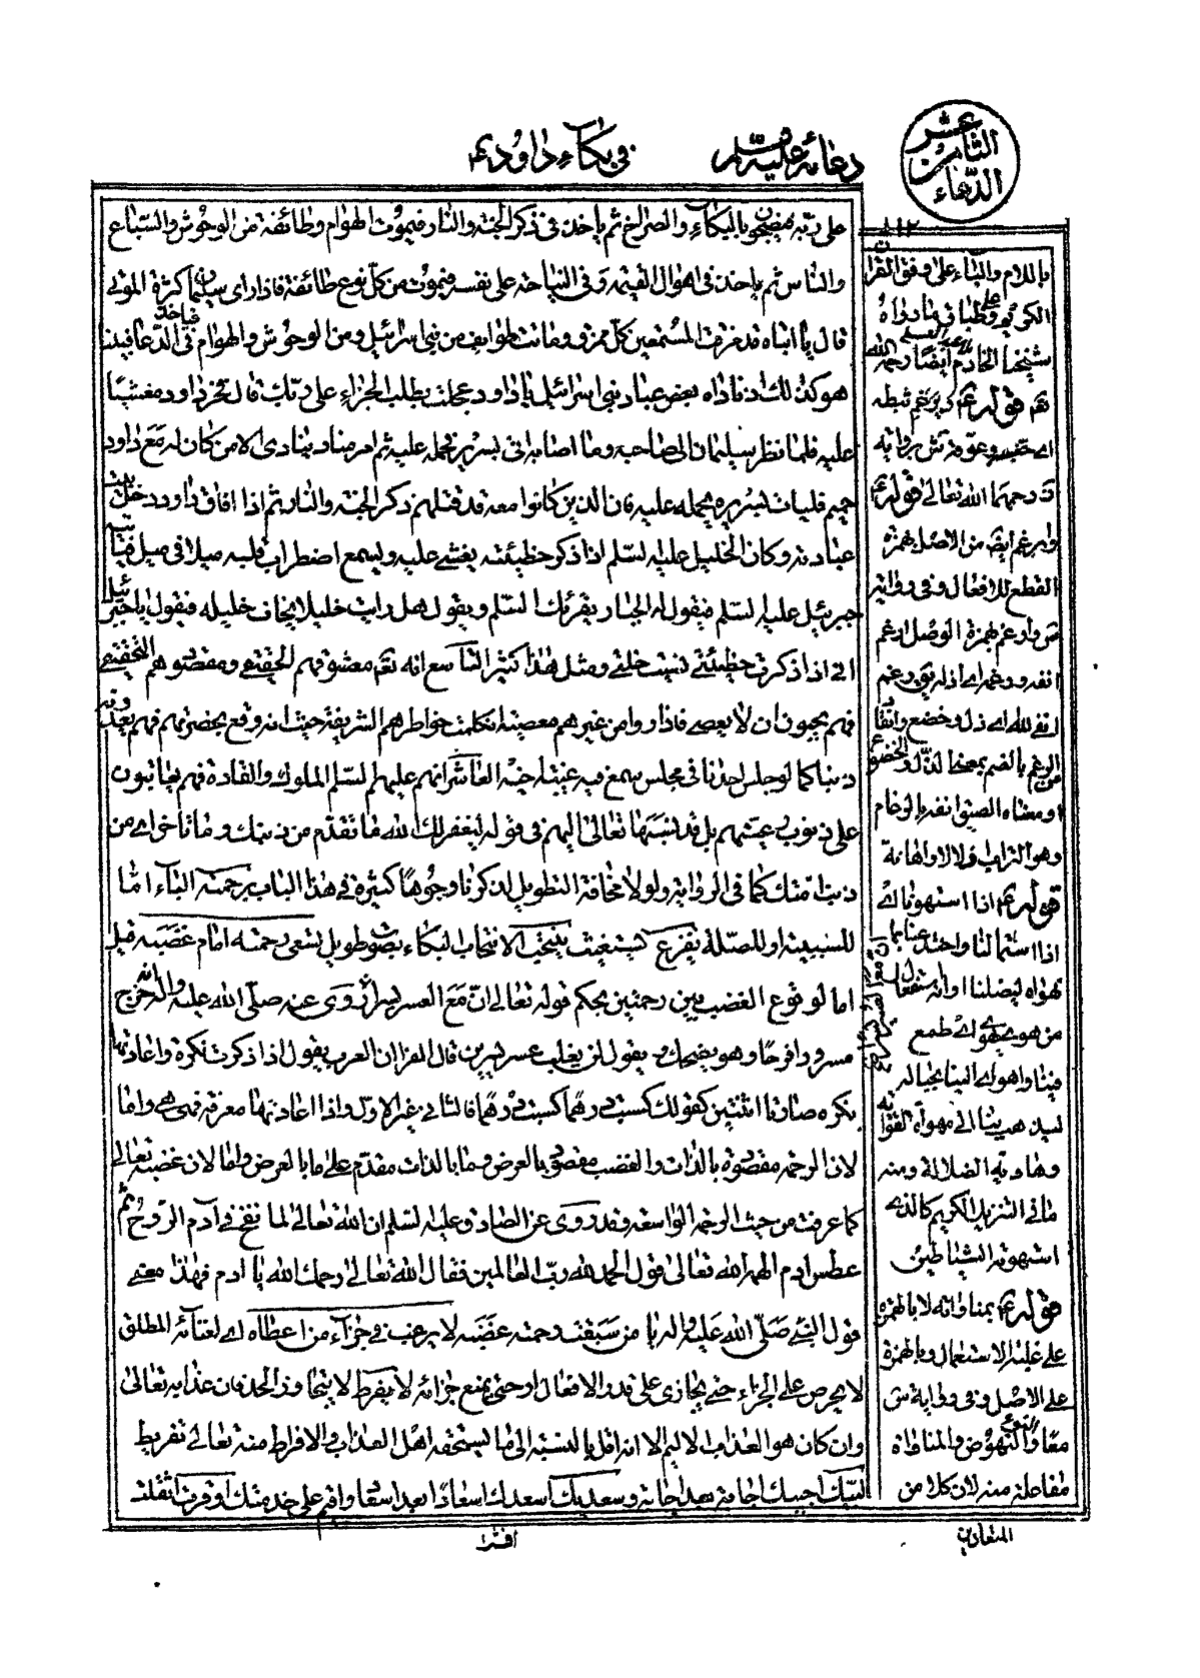 الدعاء الثامن عشر
دعائه عليه السلام
في بكاء داود ع
١١٢
على ربه فيضجون بالبكاء والصراخ ثم ياخذ في ذكر الجنة والنار فيموت الهوام وطائفة من الوحوش والسباع
والناس ثم ياخذ في اهوال القيمة وفي النياحة على نفسه فيموت من كل نوع طائفة فاذا راى سليمان كثرة الموتى
قال يا ابتاه قد مزقت المستمعين كل ممزق وماتت طوايف من بني اسرائيل ومن الوحوش والهوام فياخذ في الدعا فبينا
هو كذلك اذ ناداه بعض عباد بني اسرائيل يا داود عجلت بطلب الجزاء على ربك قال فخر داود مغشيا
عليه فلما نظر سليمان الى صاحبه وما اصابه اتى بسرير فحمله عليه ثم امر مناد ينادي الا من كان له مع داود
حميم فليات بسريره يحمله عليه فان الذين كانوا معه قد قتلهم ذكر الجنة والنار ثم اذا افاق داود دخل بيت
عبادته وكان الخليل عليه السلم اذا ذكر خطيئته يغشى عليه ويسمع اضطراب قلبه ميلا في ميل فياتيه
جبرئيل عليه السلم فيقول له الجبار يقرئك السلم ويقول هل رايت خليلا يخاف خليله فيقول يا جبرئيل
اني اذا ذكرت خطيئتي نسيت خلتي ومثل هذا كثير التاسع انه تعالى معشوقهم الحقيقي ومقصودهم التحقيقي
فهم يحبون ان لا يعصى فاذا راوا من غيرهم معصية تكلمت خواطرهم الشريفة حيث انه وقع بحضرتهم فهم يعدونه
ذنبا كما لو جلس احدنا في مجلس سمع فيه غيبة حبيبه العاشر انهم عليهم السلم الملوك والقادة فهم يعاتبون
على ذنوب رعيتهم بل قد نسبها تعالى اليهم في قوله ليغفر لك الله ما تقدم من ذنبك وما تاخر اي من
ذنب امتك كما في الرواية ولولا مخافة التطويل لذكرنا وجوها كثيرة في هذا الباب برحمته الباء اما
للسببية او للصلة تفزع تستغيث ينتحب الانتحاب البكاء بصوت طويل تسعى رحمته امام غضبه قيل
اما لوقوع الغضب بين رحمتين بحكم قوله تعالى ان مع العسر يسرا روى عنه صلى الله عليه واله انه خرج
مسرورا فرحا وهو يضحك ويقول لن يغلب عسر يسرين قال الفراء ان العرب يقول اذا ذكرت نكرة واعادتها
بنكرة صارتا اثنتين كقولك كسبت درهما كسبت درهما فالثاني غير الاول واذا اعادتها معرفة فهي هي واما
لان الرحمة مقصودة بالذات والغضب مقصود بالعرض وما بالذات مقدم على ما بالعرض واما لان غضبه تعالى
كما عرفت من حيث الرحمة الواسعة وقد روى عن الصادق عليه السلم ان الله تعالى لما نفخ في آدم الروح ثم
عطس ادم الهمه الله تعالى قول الحمد لله رب العالمين فقال الله تعالى رحمك الله يا ادم فهذا معنى
قول النبي صلى الله عليه واله يا من سبقت رحمته غضبه لا يرغب في جزاء من اعطاه اي لغنائه المطلق
لا يحرص على الجزاء حتى يجازي على قدر الافعال او حتى يمنع جزائه لا يفرط لا يتجاوز الحد فان عذابه تعالى
وان كان هو العذاب الاليم الا انه اقل بالنسبة الى ما يستحقه اهل العذاب والافراط منه تعالى تفريط
لبيك اجيبك اجابة بعد اجابة وسعديك اسعدك اسعادا بعد اسعاد واقم على خدمتك اوقرت اثقلت
افترا
باللام والباء على وفق القران
الكريم وطباق ما رواه
شيخنا الخادم ايضا رحمه الله
تعالى قوله كبر ثبطه
رحمهما الله تعالى قوله
وارغم ايضا من الاصل بهمزة
القطع للافعال وفي رواية
س وادغم بهمزة الوصل ادغم
انفي لله اي ذل وخضع وانقاد
الرغم بالضم بمعنى الذل والخضوع
او معناه الصق انفه بالرغام
وهو التراب ذلالا واهانة
قوله اذا استهوتنا اي
اذا استمالنا واجتذبنا
تهواه ليضلنا او انه استفعال
من هوى يهوي اي طمع
فينا واهوى الينا بحباله
ليهدينا الى مهواة الغواية
وهاوية الضلالة ومنه
ما في التنزيل الكريم كالذي
استهوته الشياطين
قوله بمناواته لا بالهمزة
على غلبة الاستعمال وبالهمزة
على الاصل وفي رواية س
معا والنهوض والمناواة
مفاعلة منه لان كلا من
المتعاديين